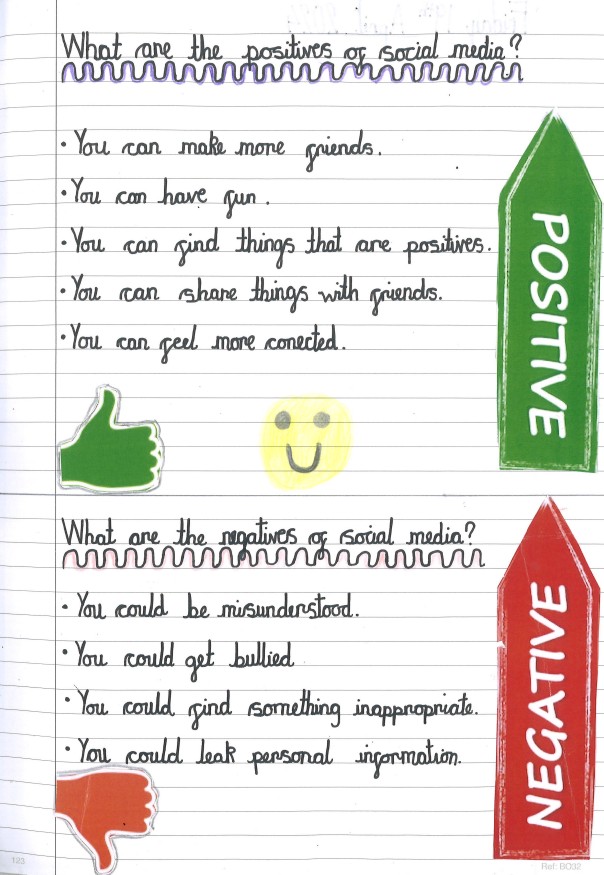 What are the positives of social media?
• You can make more friends.
• You can have fun.
• You can find things that are positives.
• You can share things with friends.
• You can feel more conected.
POSITIVE
What are the negatives of social media?
• You could be misunderstood.
• You could get bullied
• You could find something inappropriate.
• You could leak personal information.
NEGATIVE
123
Ref: BO32